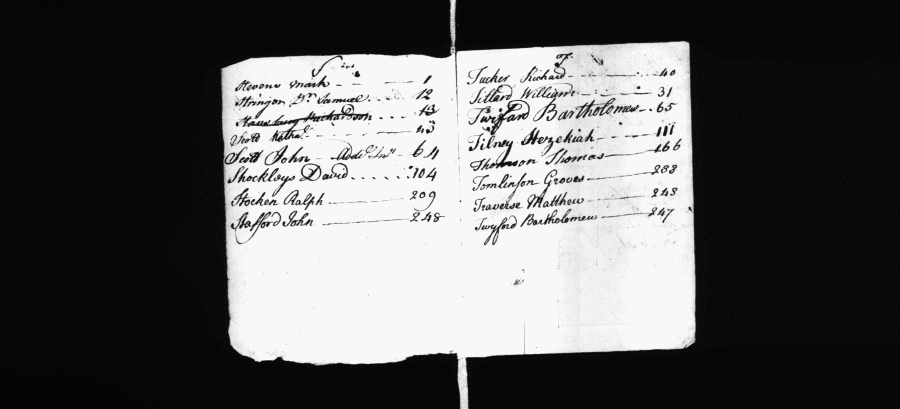 S
Stevens Mark - - 1
Stringer Dr. Samuel - - 12
Richardson - - 13
Scott Nathal. - - 43
Scott John - Addl. Inv. - 64
Shockleys David - - - 104
Stocken Ralph - 209
Stafford John - 248
T
Tucker Richard - 40
Tillard William - 31
Twiffard Bartholomew - 65
Tilney Hezekiah - 111
Thomson Thomas - 166
Tomlinson Groves - 233
Traverse Matthew - 243
Twyford Bartholomew - 247